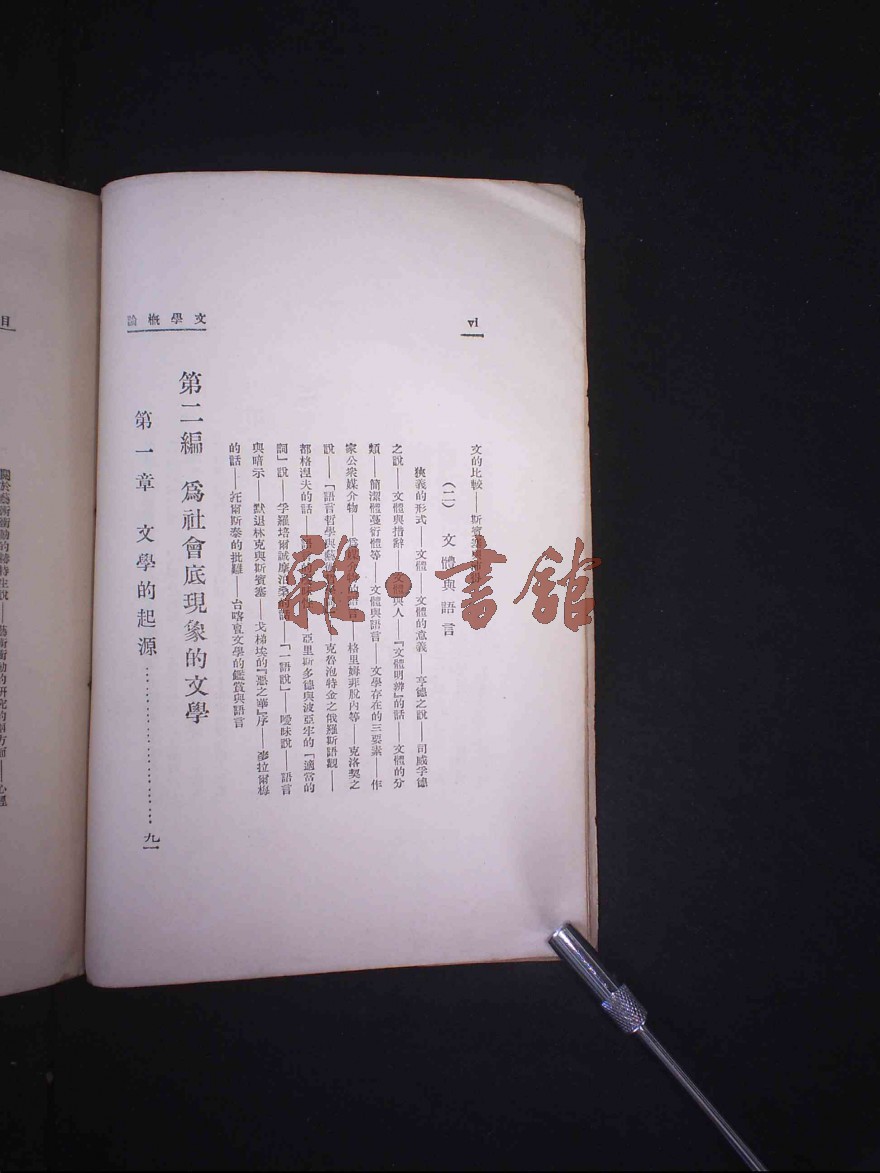 vi
文學概論
文的比較——斯賓
（二）　文體與語言
狹義的形式——文體——文體的意義——亨德之說——司威孚德
之說——文體與措辭——文體與人——『文體明辨』的話——文體的分
類——簡潔體蔓衍體等——文體與語言——文學存在的三要素——作
家公衆媒介物——的語言——格里姆非脫內等——克洛契之
說——「語言哲學與藝術——克魯泡特金之俄羅斯語觀——
都格涅夫的話——語——亞里斯多德與波亞牢的「適當的
詞」說——孚羅培爾誡摩泊桑的話——「一語說」——曖昧說——語言
與暗示——默退林克與斯賓塞——戈梯埃的『惡之華』序——麥拉爾梅
的話——托爾斯泰的批難——台喀耷文學的鑑賞與語言
第二編　爲社會底現象的文學
第一章　文學的起源……………………九一
目
關於藝術衝動的
說——藝術衝動的研究的兩方面——心理
雜·書館